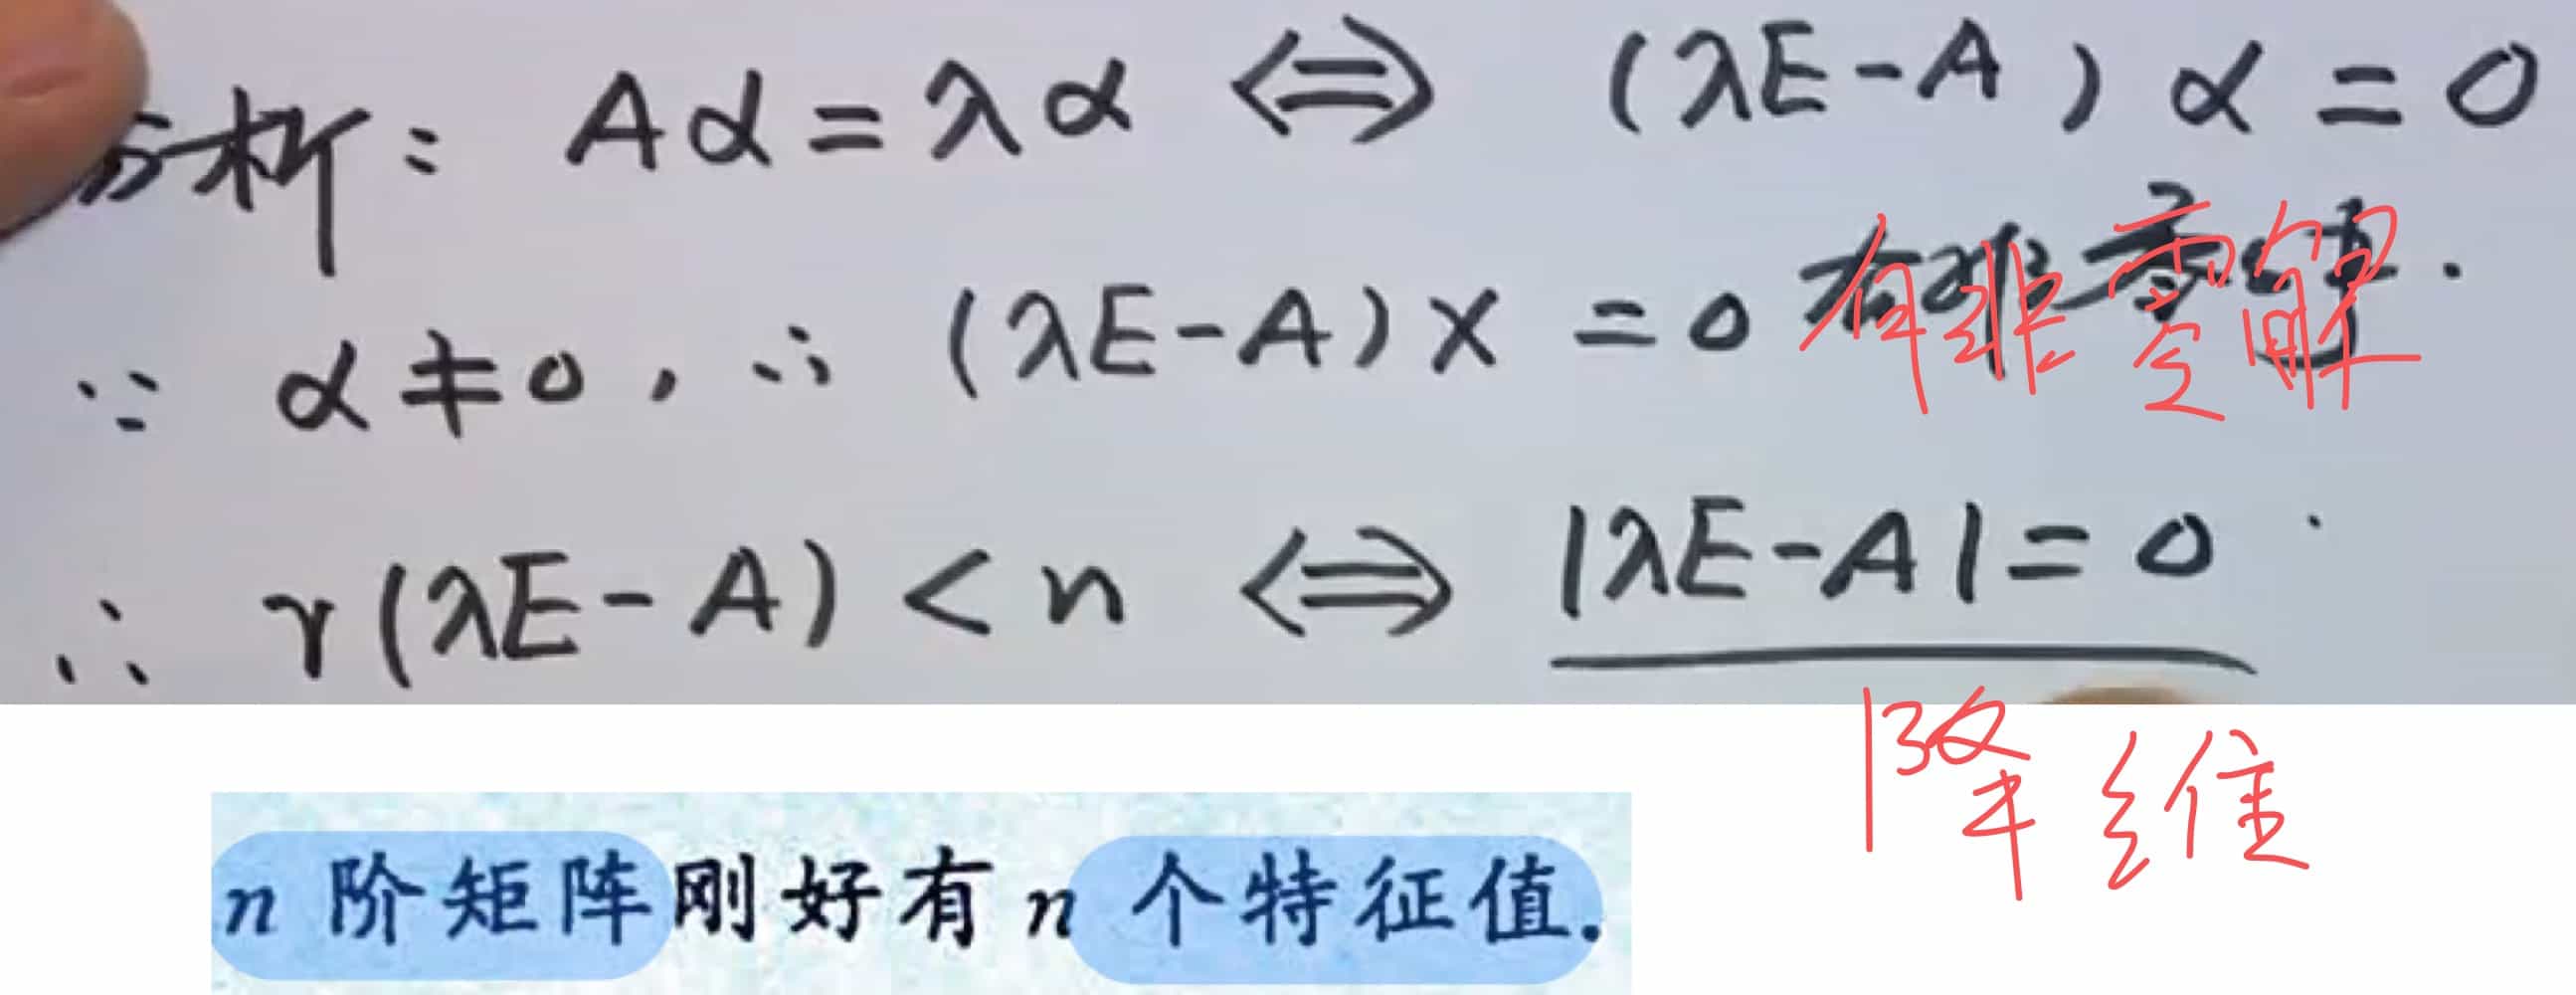 分析： Aα=λα ⟺ (λE-A)α=0
∵ α≠0, ∴ (λE-A)X=0 有非零解.
∴ r(λE-A)<n ⟺ |λE-A|=0.
降维
n 阶矩阵刚好有 n 个特征值.